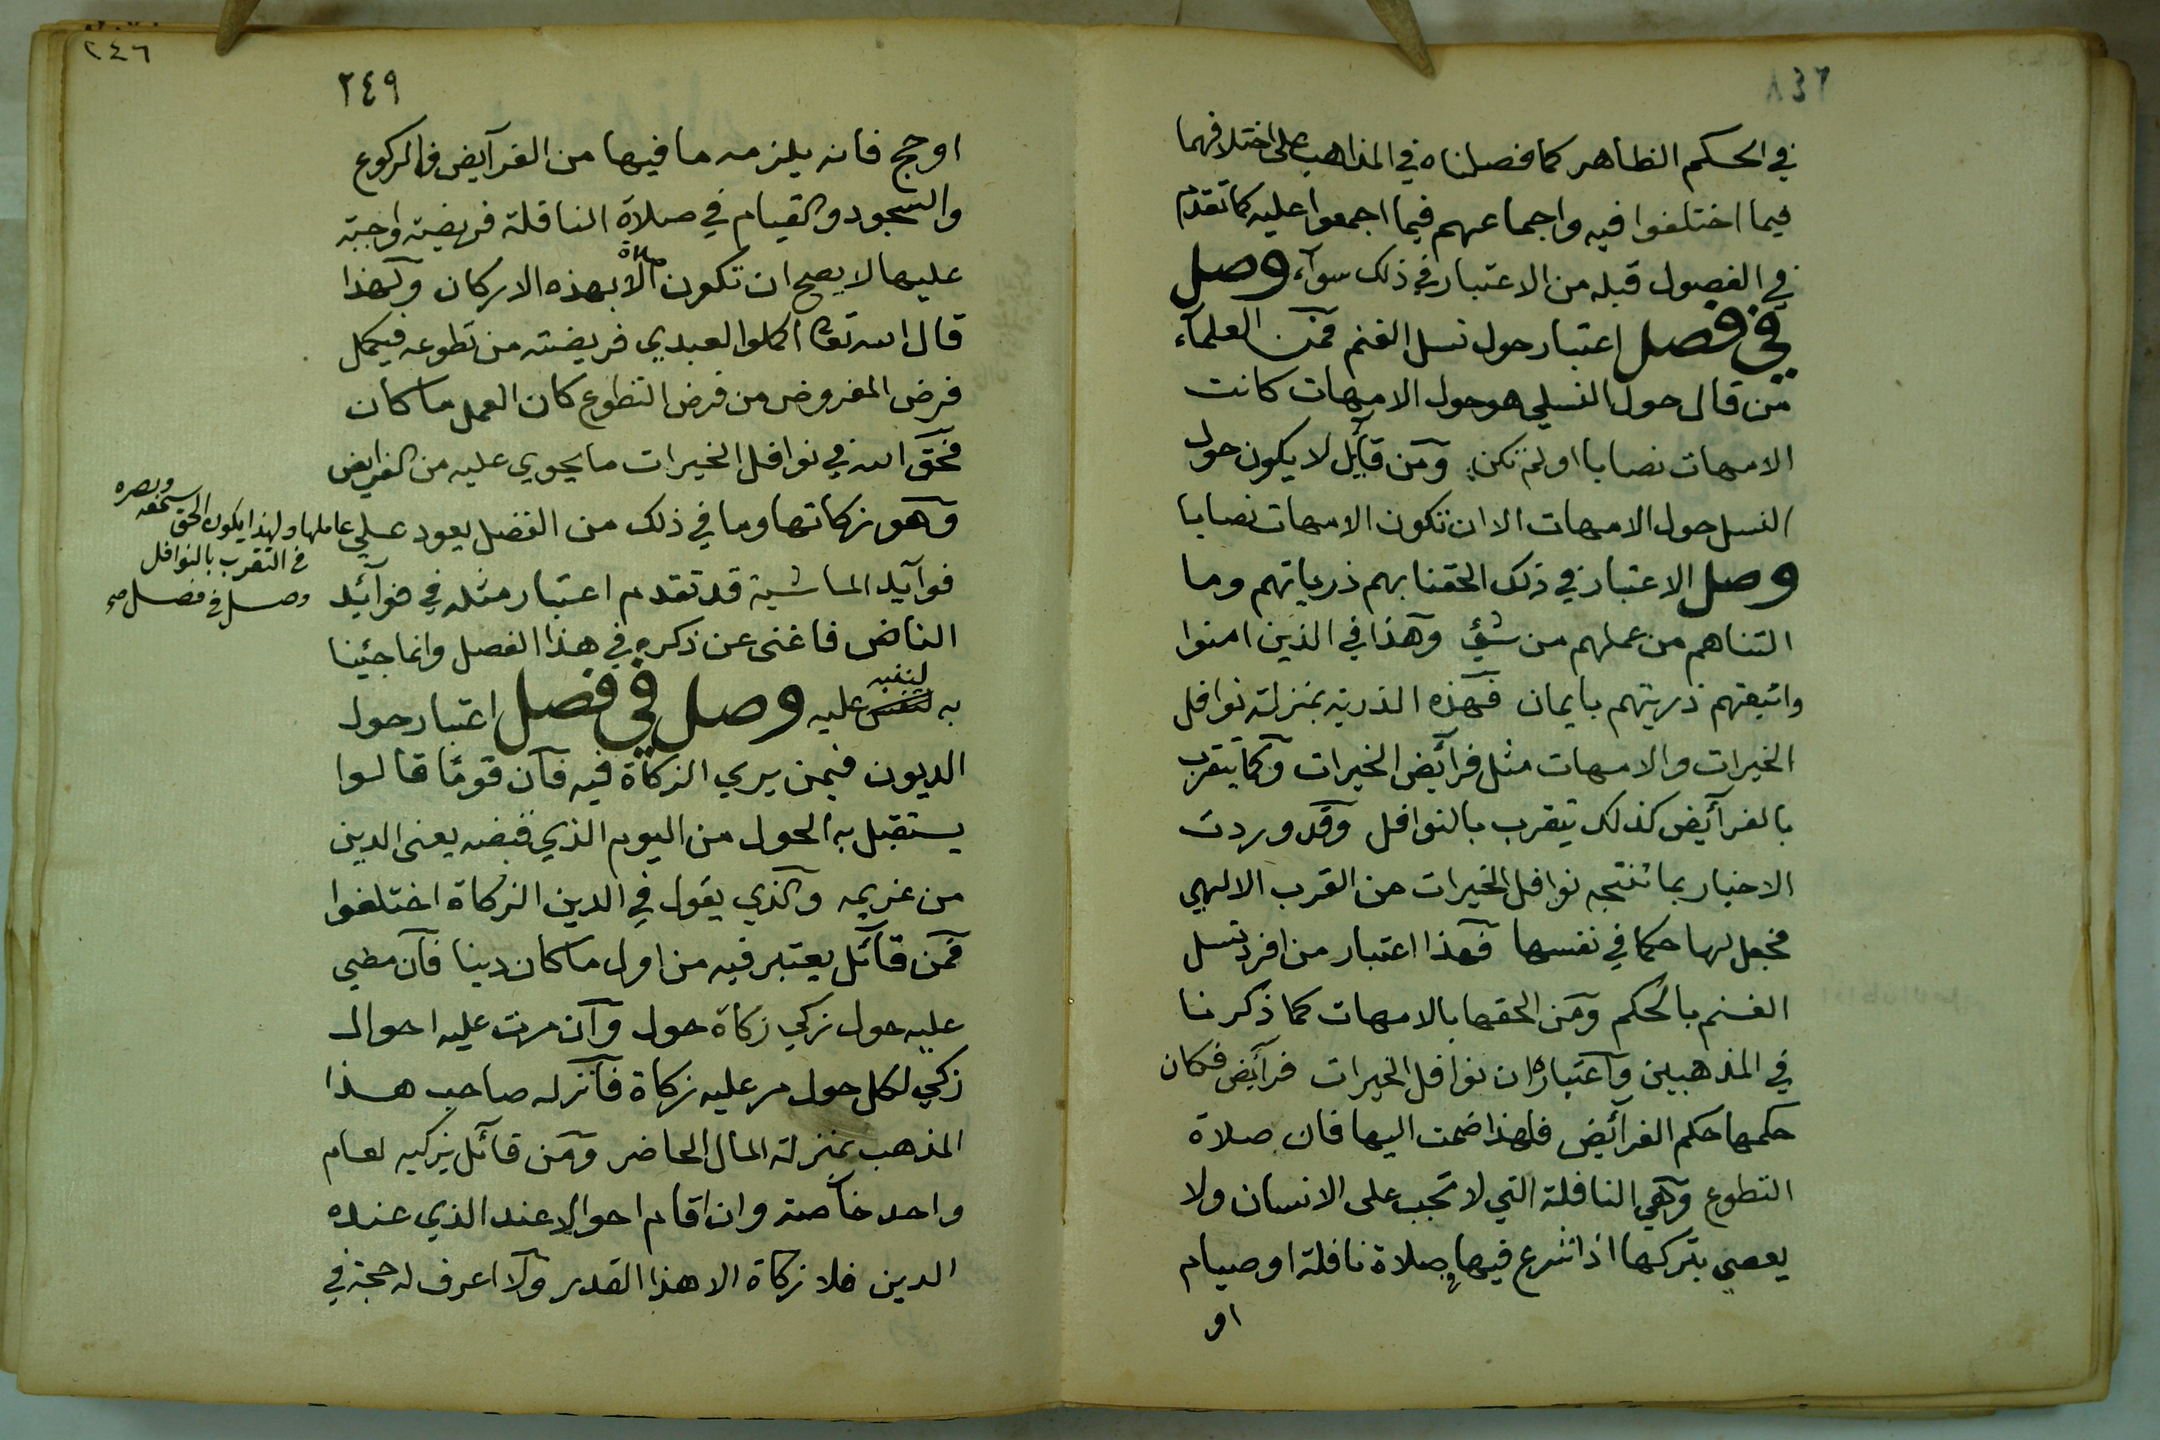 في الحكم الظاهر كما فصلناه في المذاهب على اختلافهما
فيما اختلفوا فيه واجماعهم فيما اجمعوا عليه كما تقدم
في الفصول قبله من الاعتبار في ذلك سوآء وصل
في فصل اعتبار حول نسل الغنم فمن العلمآء
من قال حول النسل هو حول الامهات كانت
الامهات نصابا او لم تكن ومن قايل لا يكون حول
النسل حول الامهات الا ان تكون الامهات نصابا
وصل الاعتبار في ذلك الحقنا بهم ذرياتهم وما
التناهم من عملهم من شئ وهذا في الذين امنوا
واتبعتهم ذريتهم بايمان فهذه الذرية بمنزلة نوافل
الخيرات والامهات مثل فرآئض الخيرات وكما يتقرب
بالفرآئض كذلك يتقرب بالنوافل وقد وردت
الاخبار بما تنتجه نوافل الخيرات من القرب الالهي
فجعل لها حكما في نفسها فهذا اعتبار من افرد نسل
الغنم بالحكم ومن الحقها بالامهات كما ذكرنا
في المذهبين واعتباره ان نوافل الخيرات فرآئض فكان
حكمها حكم الفرآئض فلهذا ضمت اليها فان صلاة
التطوع وهي النافلة التي لا تجب على الانسان ولا
يعصي بتركها اذا شرع فيها صلاة نافلة او صيام
او
٢٤٦
٢٤٩
او حج فانه يلزمه ما فيها من الفرآيض فالركوع
والسجود والقيام في صلاة النافلة فريضة واجبة
عليها لا يصح ان تكون صلاة الا بهذه الاركان ولهذا
قال الله تعا اكملوا لعبدي فريضته من تطوعه فيكمل
فرض المفروض من فرض التطوع كان العمل ما كان
فحق الله في نوافل الخيرات ما يحوي عليه من الفرايض
وهو زكاتها وما في ذلك من الفضل يعود على عاملها ولهذا يكون الحق سمعه وبصره
في التقرب بالنوافل
وصل في فصل صح
فوآيد الماشية قد تقدم اعتبار مثله في فوآئد
الناض فاغنى عن ذكره في هذا الفصل وانما جئنا
به لننبه عليه وصل في فصل اعتبار حول
الديون فيمن يري الزكاة فيه فان قوما قالوا
يستقبل به الحول من اليوم الذي قبضه يعنى الدين
من غريمه والذي يقول في الدين الزكاة اختلفوا
فمن قآئل يعتبر فيه من اول ما كان دينا فان مضي
عليه حول زكي زكاة حول وان مرت عليه احوال
زكي لكل حول مر عليه زكاة فانزله صاحب هذا
المذهب بمنزلة المال الحاضر ومن قآئل يزكيه لعام
واحد خاصة وان اقام احوالا عند الذي عنده
الدين فلا زكاة الا هذا القدر ولا اعرف له حجة في